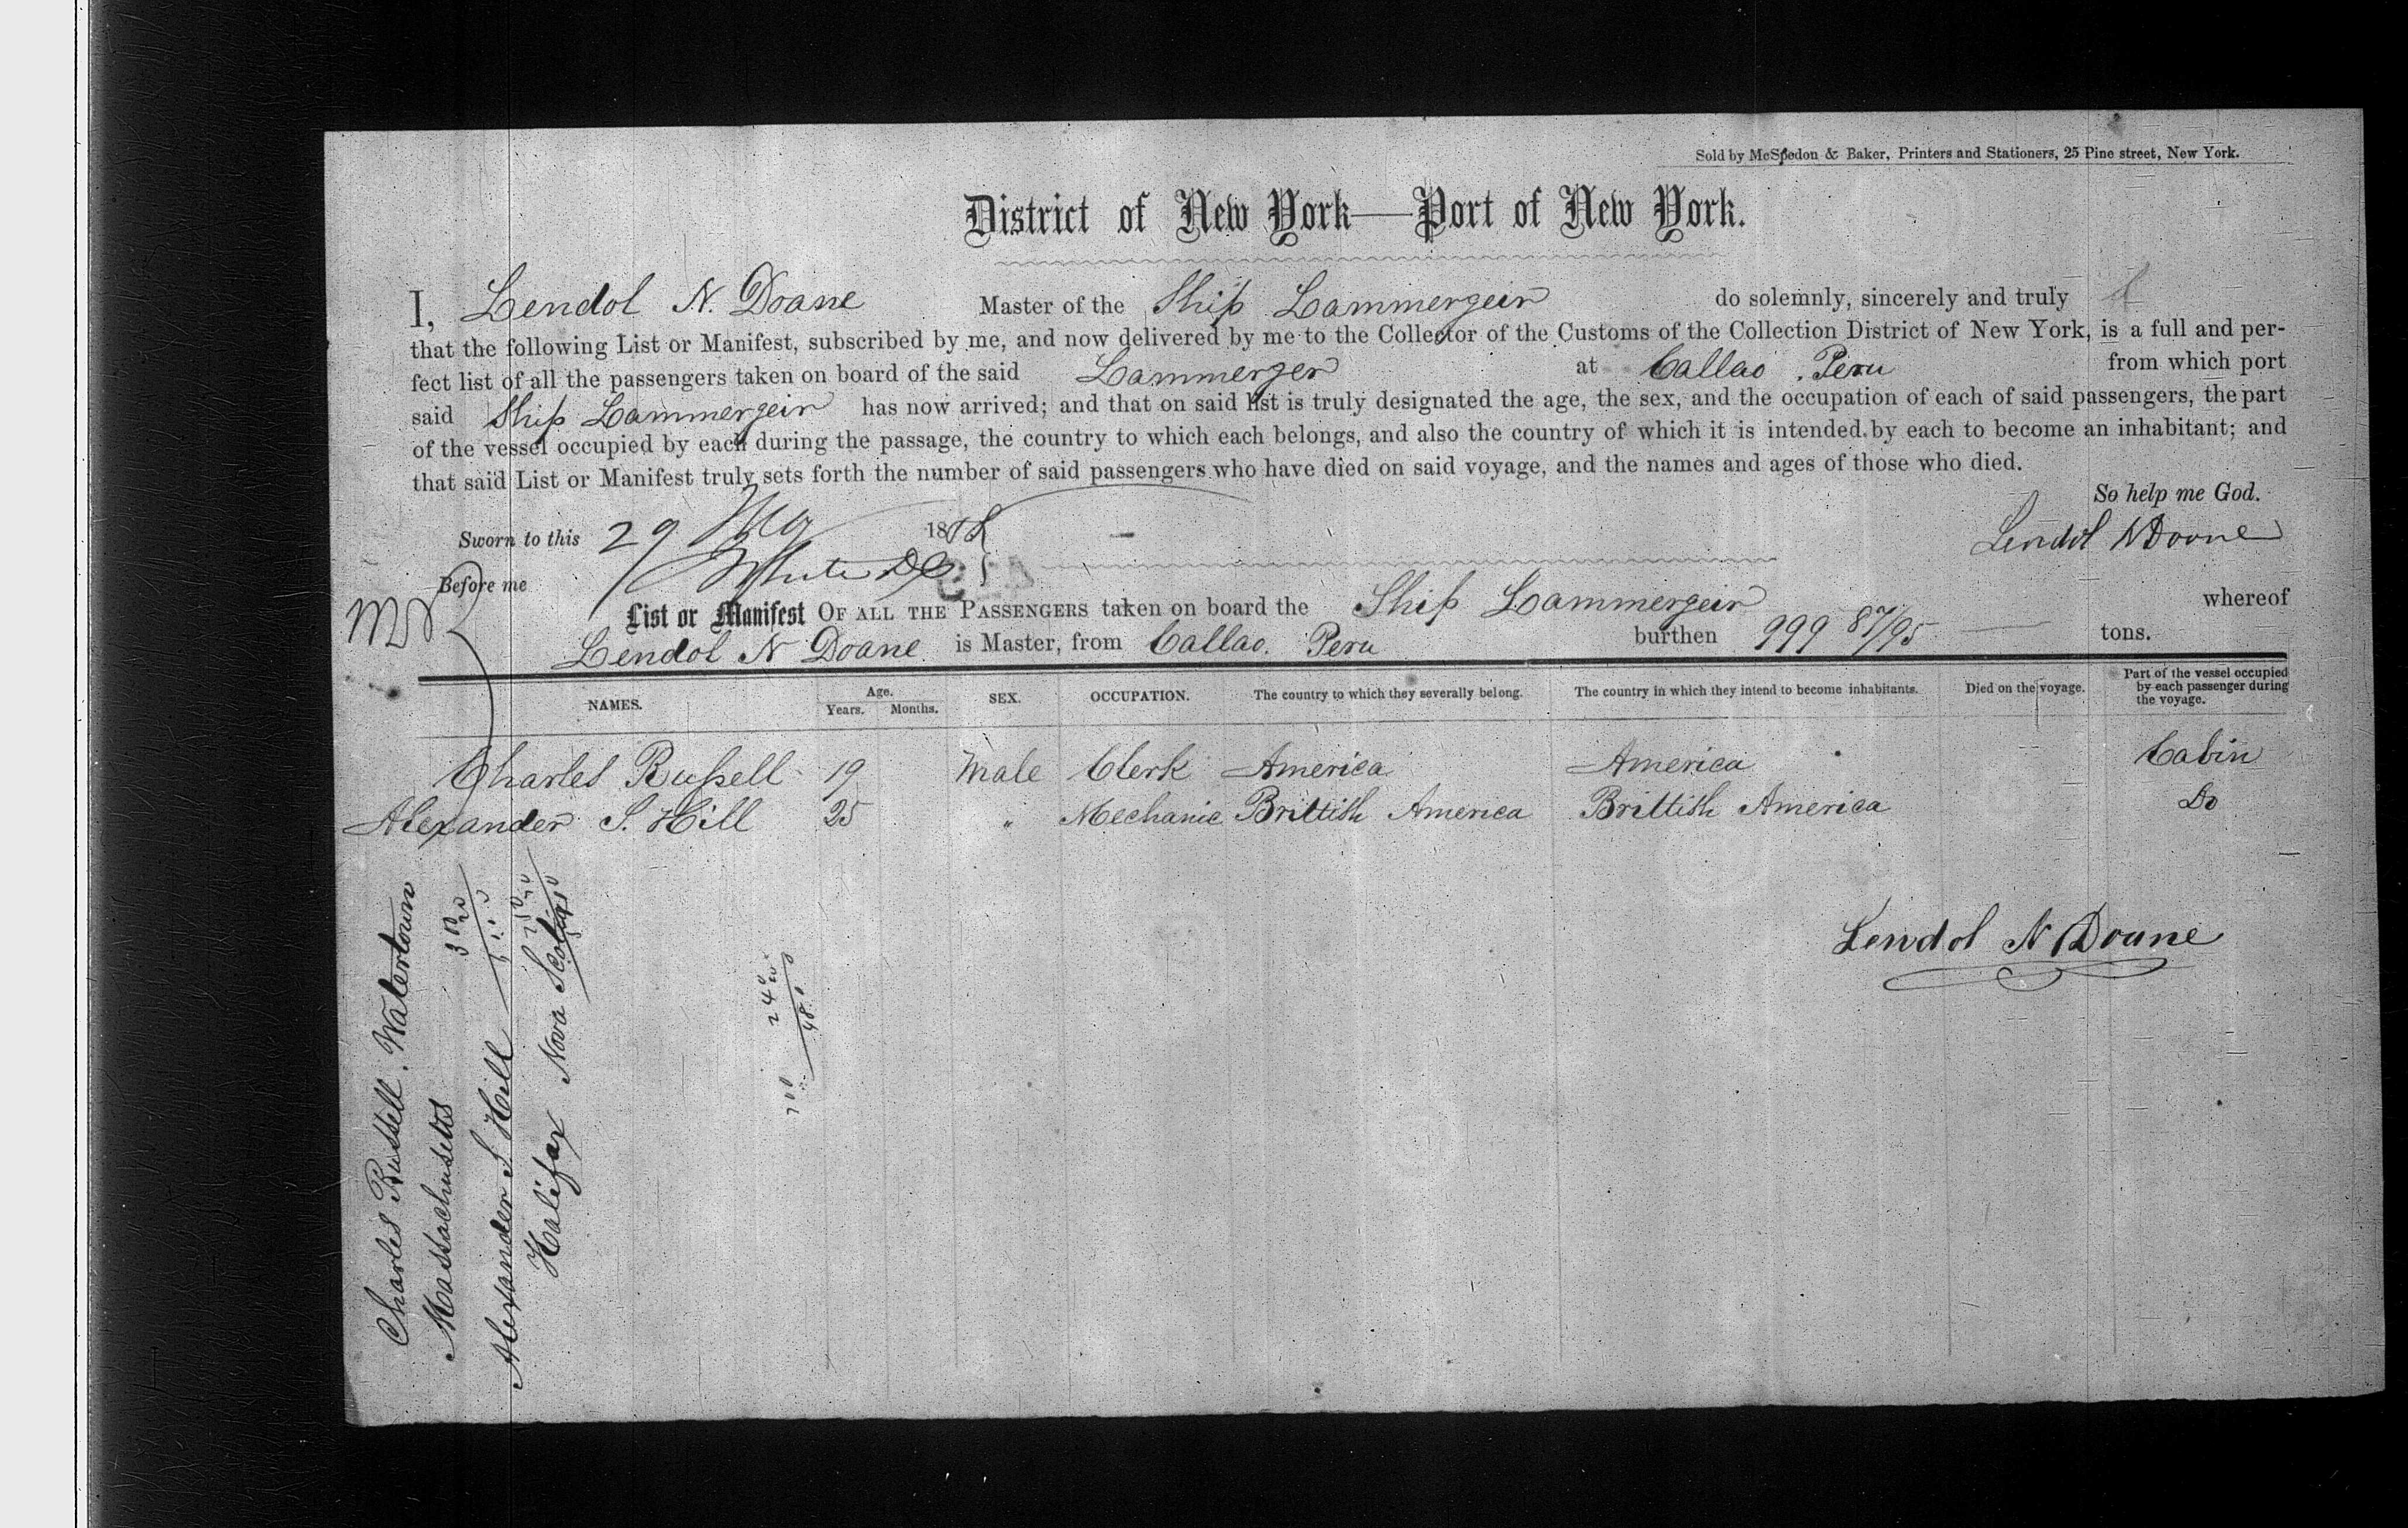 Sold by McSpedon & Baker, Printers and Stationers, 25 Pine street, New York.
District of New York—Port of New York.
I, Lendol N. Doane Master of the Ship Lammergeir do solemnly, sincerely and truly
that the following List or Manifest, subscribed by me, and now delivered by me to the Collector of the Customs of the Collection District of New York, is a full and per-
fect list of all the passengers taken on board of the said Lammerger at Callao, Peru from which port
said Ship Lammergeir has now arrived; and that on said list is truly designated the age, the sex, and the occupation of each of said passengers, the part
of the vessel occupied by each during the passage, the country to which each belongs, and also the country of which it is intended by each to become an inhabitant; and
that said List or Manifest truly sets forth the number of said passengers who have died on said voyage, and the names and ages of those who died.
So help me God.
Sworn to this 29 18
Lendol N Doane
Before me White
List or Manifest OF ALL THE PASSENGERS taken on board the Ship Lammergeir whereof
Lendol N Doane is Master, from Callao. Peru burthen 999 87/95 tons.
NAMES. Age. Years. Months. SEX. OCCUPATION. The country to which they severally belong. The country in which they intend to become inhabitants. Died on the voyage. Part of the vessel occupied by each passenger during the voyage.
Charles Russell 19 Male Clerk America America Cabin
Alexander S. Hill 25 " Mechanic Brittish America Brittish America Do
Lendol N Doane
Charles Russell. Watertown
Massachusetts
Alexander S Hill
Halifax Nova Scotia